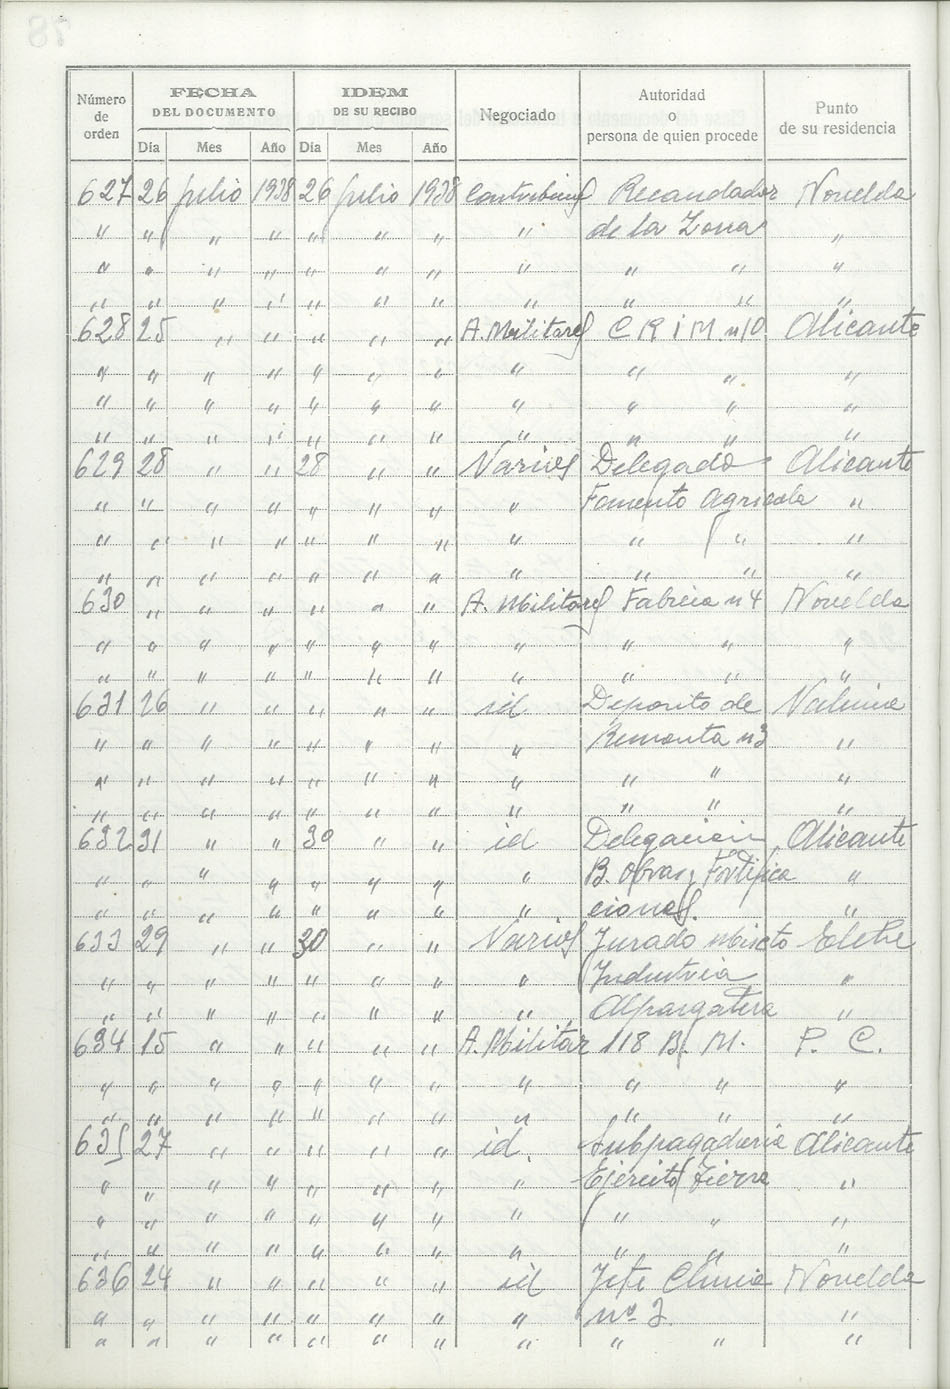 78
Número de orden | FECHA DEL DOCUMENTO | IDEM DE SU RECIBO | Negociado | Autoridad o persona de quien procede | Punto de su residencia
Día Mes Año Día Mes Año
627 26 julio 1938 26 julio 1938 Recaudador Novelda
" " " " " " " " de la Zona "
" " " " " " " " " " "
" " " " " " " " " " "
628 25 " " " " " A. Militares C R i M. nº 10 Alicante
" " " " " " " " " " "
" " " " " " " " " " "
" " " " " " " " " " "
629 28 " " 28 " " Varios Delegado Alicante
" " " " " " " " Fomento Agricola "
" " " " " " " " " " "
" " " " " " " " " " "
630 " " " " " " A. Militares Fabrica n 4 Novelda
" " " " " " " " " " "
" " " " " " " " " " "
631 26 " " " " " id Deposito de
" " " " " " " " Remonta n 3 "
" " " " " " " " " " "
" " " " " " " " " " "
632 31 " " 30 " " id Delegación Alicante
" " " " " " " " B. Obras y Fortifica "
" " " " " " " " ciones. "
633 29 " " 30 " " Varios Jurado Mixto Elche
" " " " " " " " Industria "
" " " " " " " " Alpargatera "
634 15 " " " " " A. Militar 118 B. M. P. C.
" " " " " " " " " " "
" " " " " " " " " " "
635 27 " " " " " id. Subpagaduria Alicante
" " " " " " " " Ejército Tierra "
" " " " " " " " " " "
" " " " " " " " " " "
636 24 " " " " " id Jefe Clinica Novelda
" " " " " " " " nº 2. "
" " " " " " " " " " "